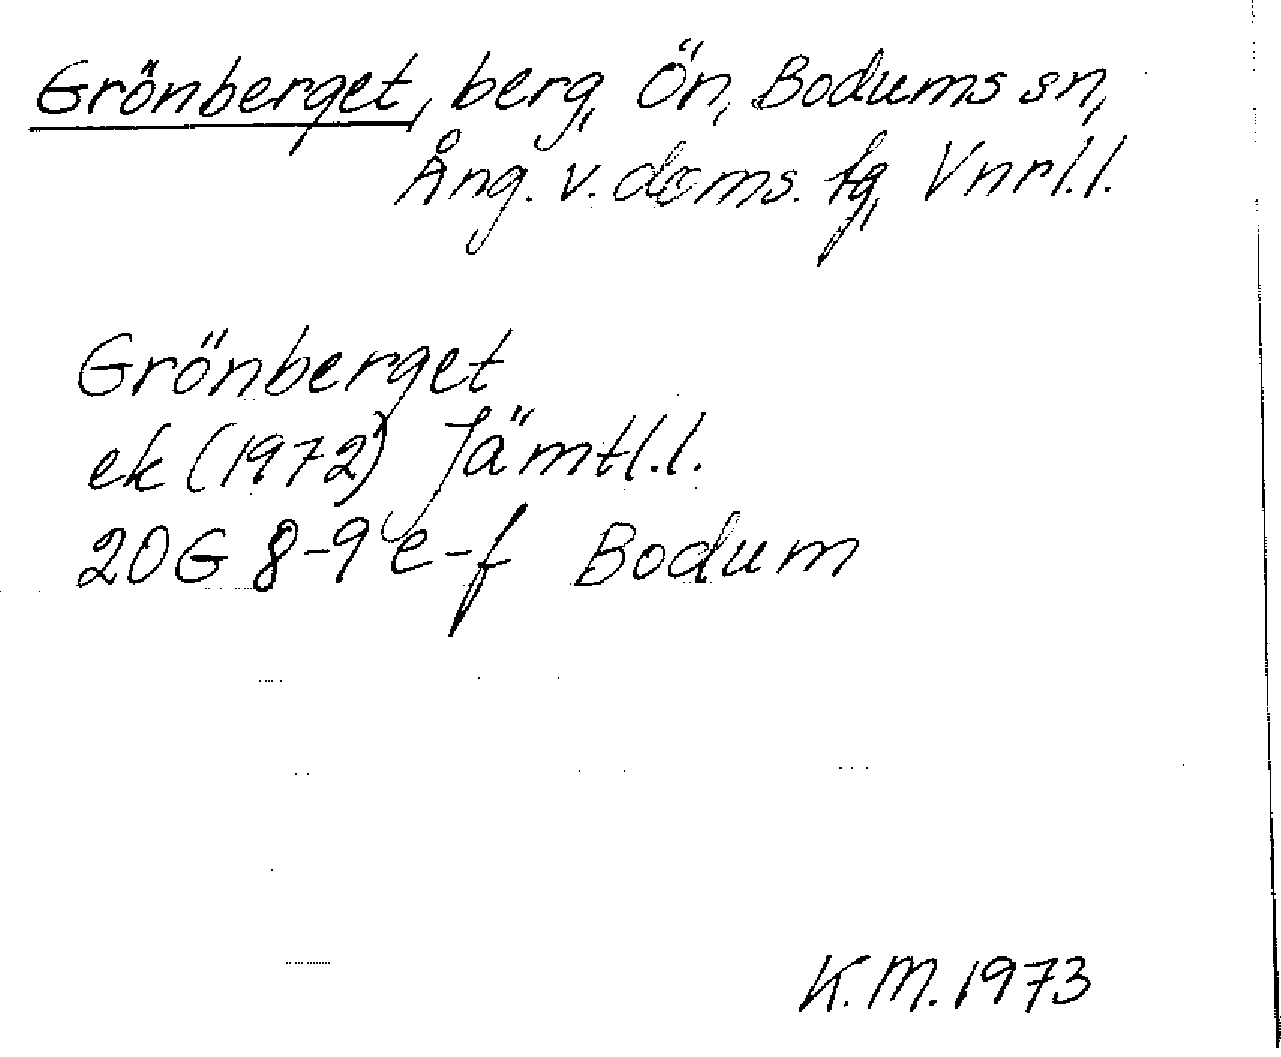 Grönberget, berg, Ön, Bodums sn,
Ång. v. doms. fg, Vnrl.l.
Grönberget
ek (1972) Jämtl.l.
20G 8-9 e-f Bodum
K.M. 1973